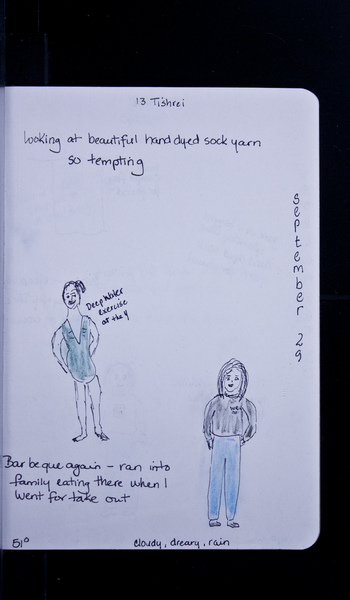 13 Tishrei
looking at beautiful hand dyed sock yarn
so tempting
september 29
Deep Water
exercise
at the Y
Bar be que again - ran into
family eating there when I
went for take out
51°
cloudy, dreary, rain